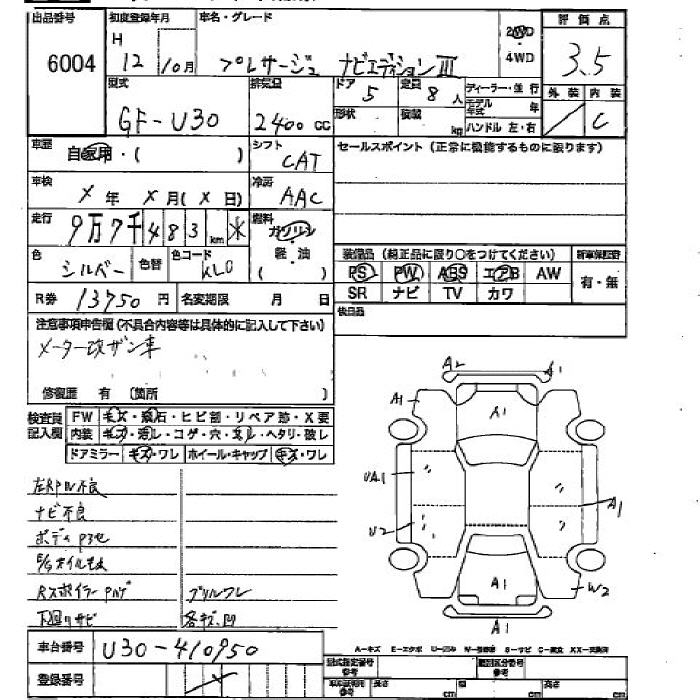 出品番号 初度登録年月 車名・グレード 評価点
6004 H 12 10月 プレサージュ ナビエディションⅢ 2WD ・ 4WD 3.5
型式 排気量 ドア 定員 ディーラー・並行 外装 内装
GF-U30 2400cc 5 8人 モデル年式 年 C
形状 積載 kg ハンドル 左・右
車歴 シフト セールスポイント（正常に機能するものに限ります）
自家用・( ) CAT
車検 冷房
X年 X月(X日) AAC
走行 燃料
9万7千483km ※ ガソリン
軽・油
( )
装備品（純正品に限り○をつけてください） 新車保証書
色 色替 色コード
シルバー KLO
PS PW ABS エアB AW 有・無
SR ナビ TV カワ
R券 13750円 名変期限 月 日
後日品
注意事項申告欄（不具合内容等は具体的に記入して下さい）
メーター改ザン車
修復歴 有 〔箇所 〕
検査員記入欄
FW キズ・飛石・ヒビ割・リペア跡・X要
内装 キズ・汚レ・コゲ・穴・スレ・ヘタリ・破レ
ドアミラー キズ・ワレ ホイール・キャップ キズ・ワレ
左RPW不良
ナビ不良
ボディ
RスポイラーPハゲ グリルワレ
下廻リサビ 各キズ、凹
A2 A1
A1 A1
UA1
U2 A1
A1 W2
A1
A－キズ E－エクボ U－凹み W－修理跡 S－サビ C－腐蝕 XX－交換済
車台番号 U30-410950
登録番号
型式指定番号 参考 類別区分番号 参考
長さ cm 幅 cm 高さ cm